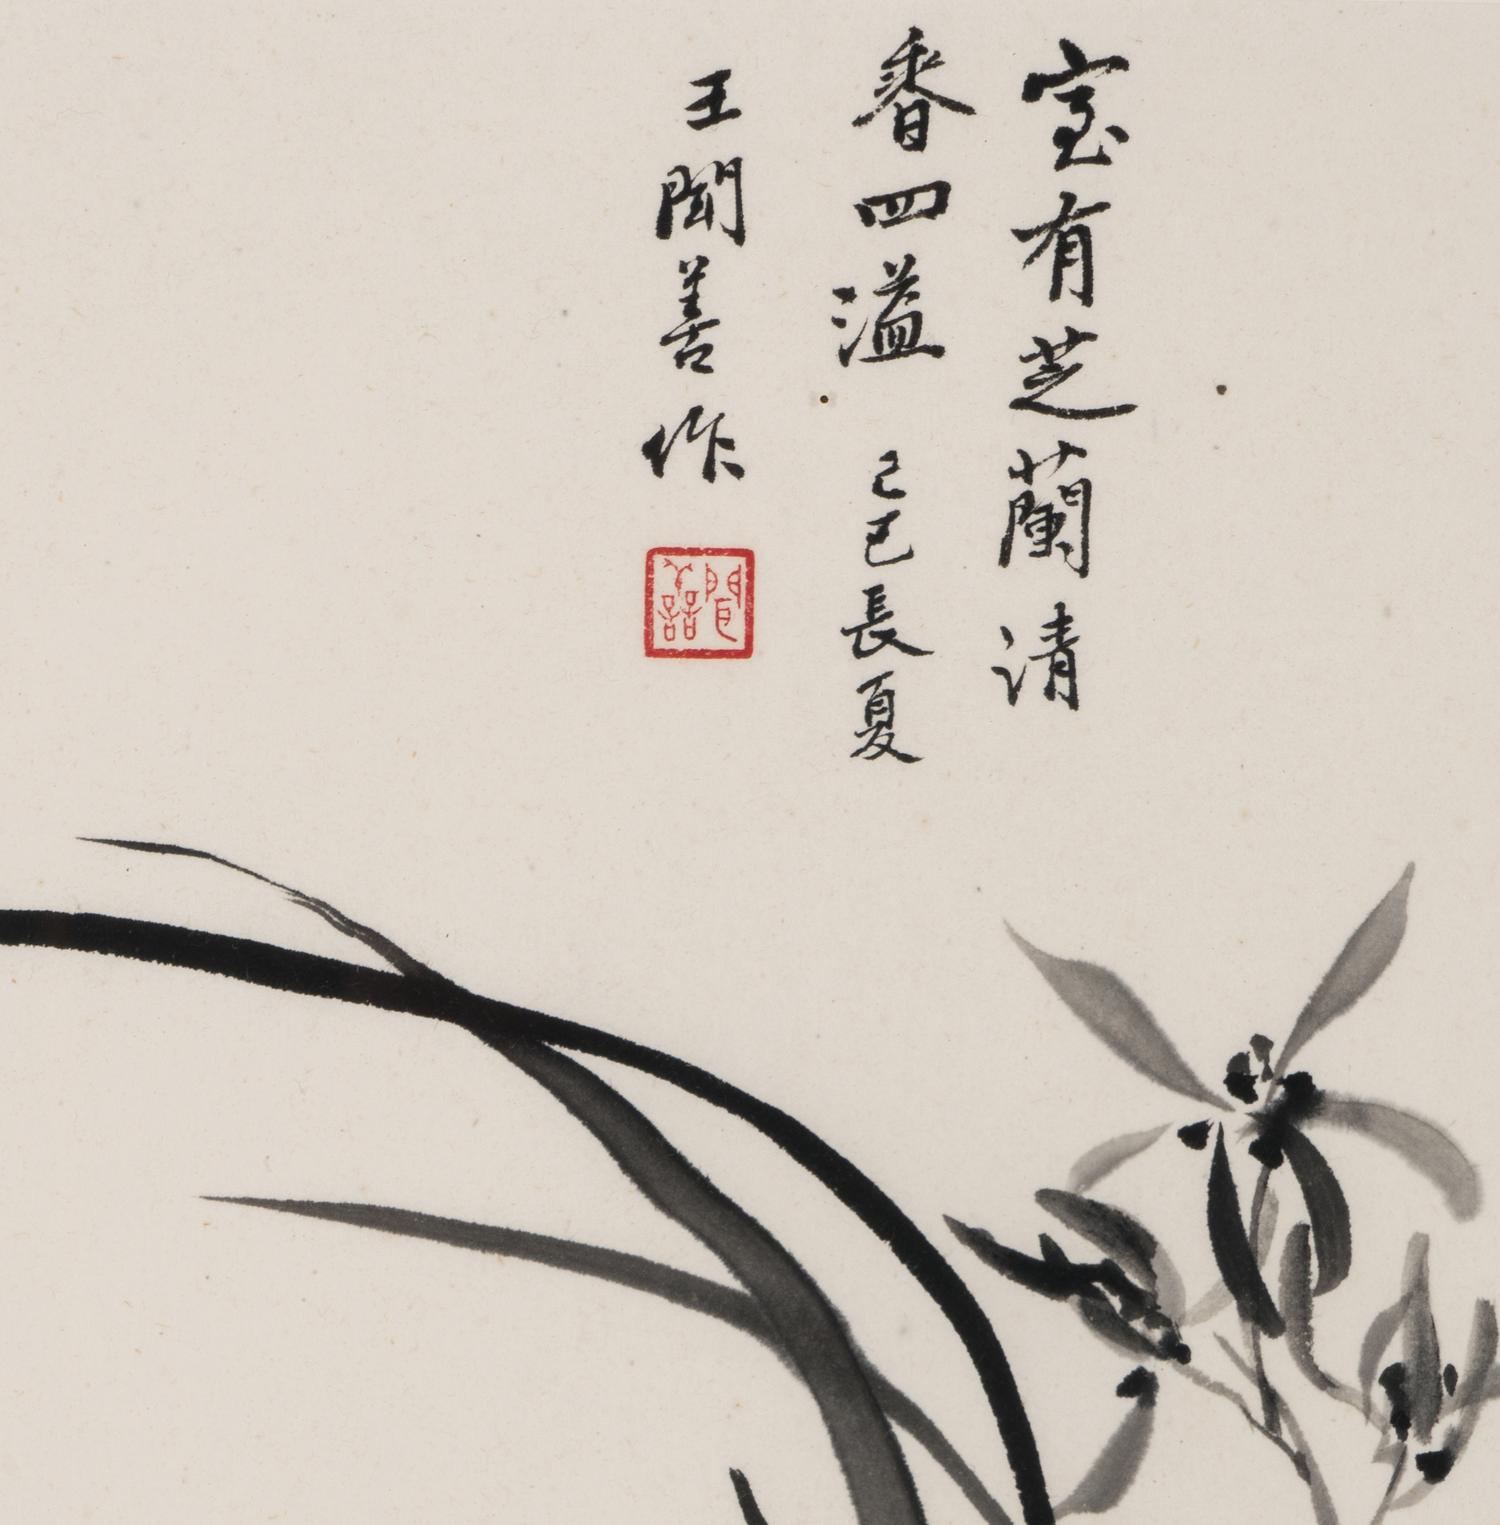 室有芝蘭清
香四溢 己巳長夏
王聞善作
聞善